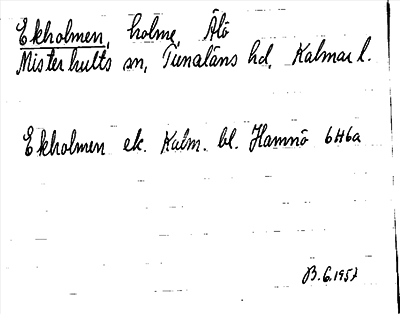 Ekholmen, holme, Älö
Misterhults sn, Tunaläns hd, Kalmar l.
Ekholmen ek. Kalm. bl. Hamnö 6H6a
B.G.1957